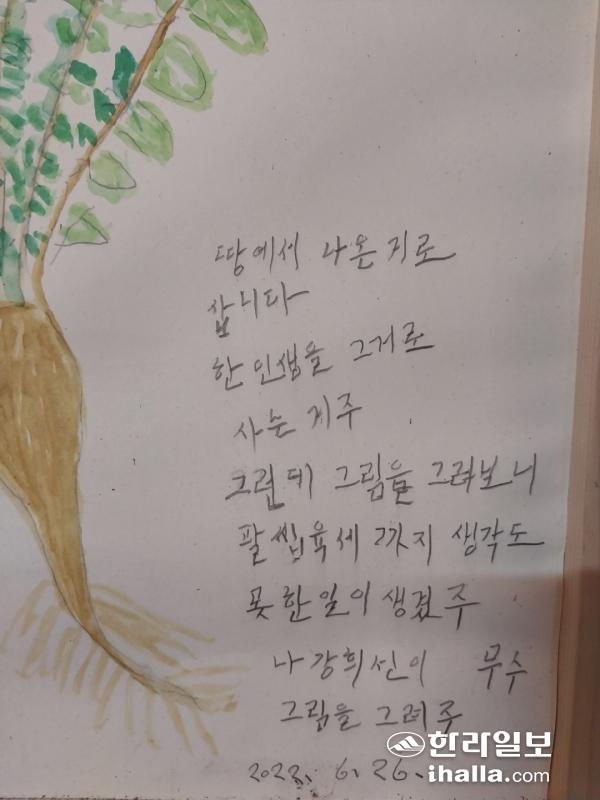 땅에서 나온 지로
삽니다
한 인생을 그거로
사는 게주
그런데 그림을 그려보니
팔씹육세 까지 생각도
못한일이 생겼주
나 강희선이 무수
그림을 그려주
2022. 6. 26.
한라일보
ihalla.com